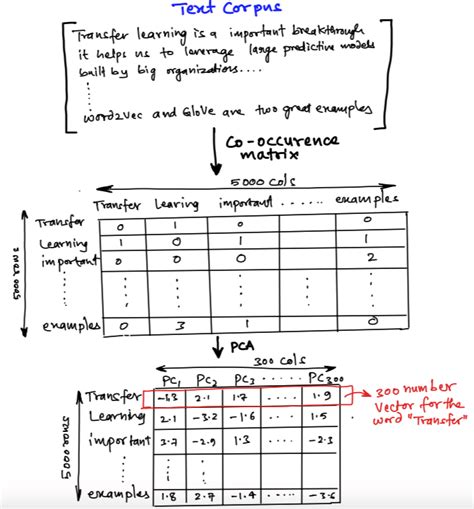 Text Corpus
Transfer learning is a important breakthrough
it helps us to leverage large predictive models
built by big organizations....
word2vec and GloVe are two great examples
Co-occurence
matrix
5000 cols
Transfer Learing important ...... examples
Transfer 0 1 0 0
Learning 1 0 1 1
important 0 0 0 2
5000 rows
examples 0 3 1 0
PCA
300 cols
PC1 PC2 PC3 ..... PC300
Transfer -1.3 2.1 1.7 .... 1.9
300 number
vector for the
word "Transfer"
Learning 2.1 -3.2 -1.6 .... 1.5
important 3.7 -2.9 1.3 .... -2.3
5000 rows
examples 1.8 2.7 -1.4 .... -3.6